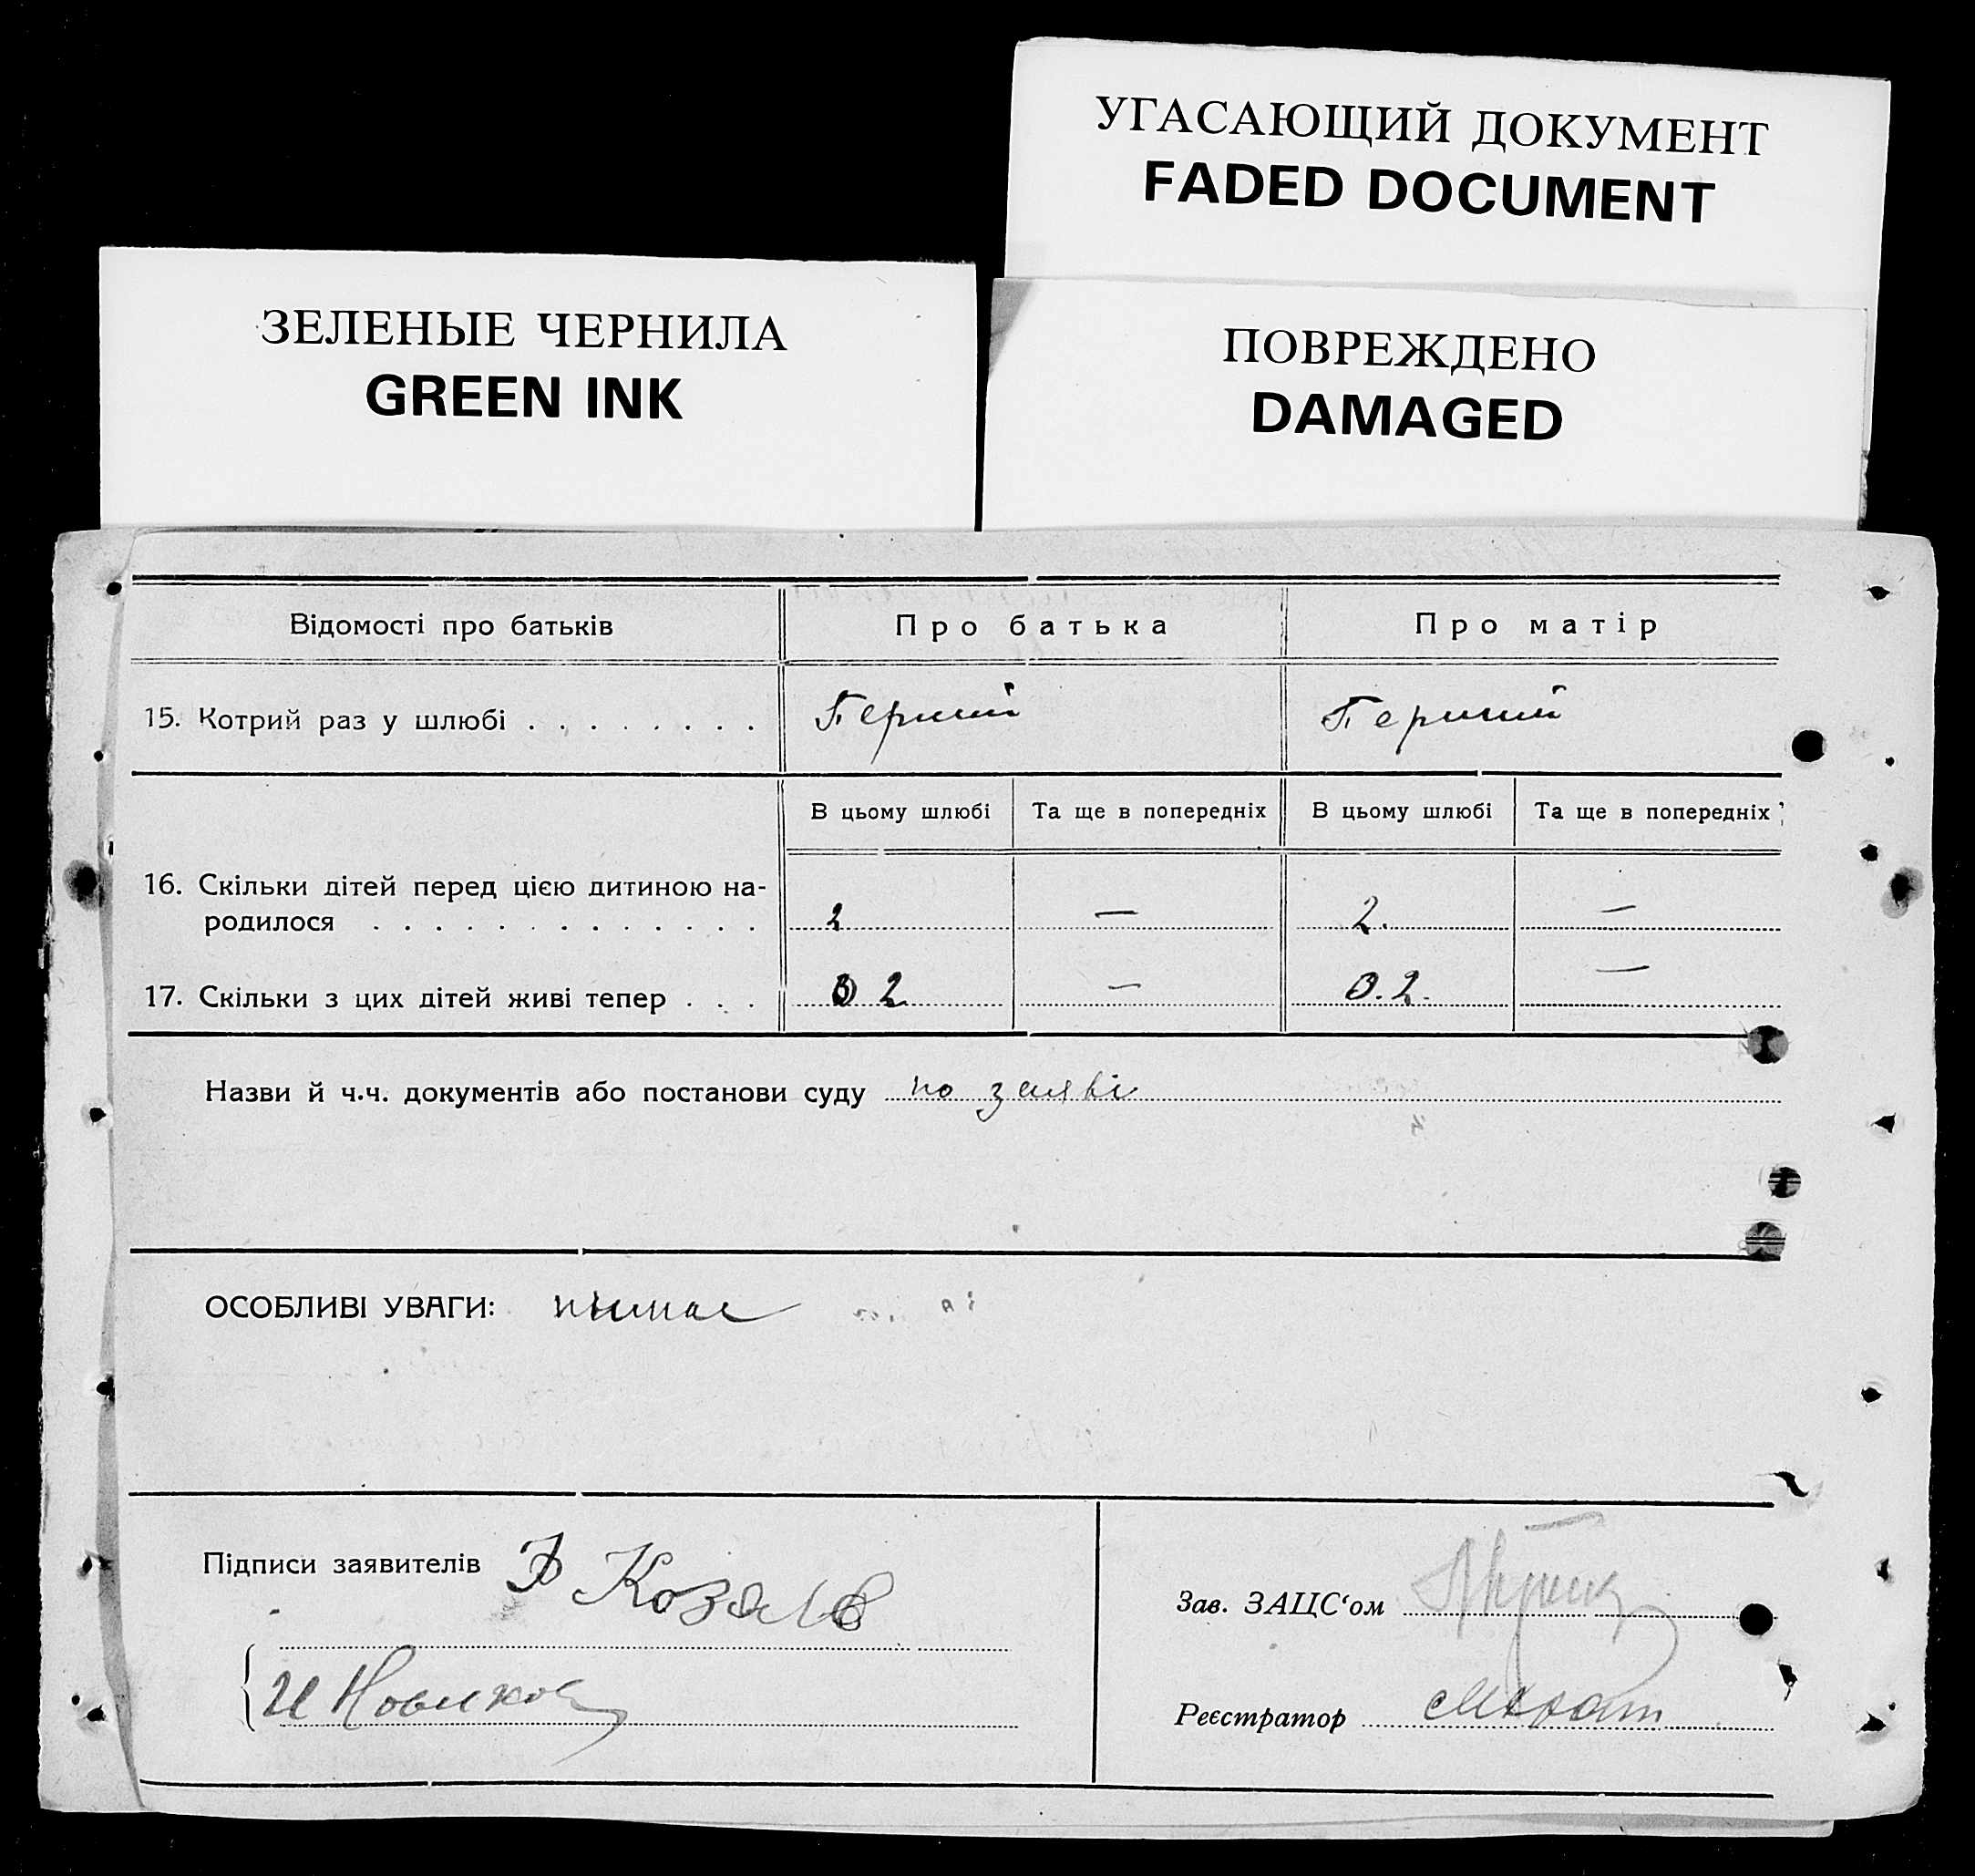 УГАСАЮЩИЙ ДОКУМЕНТ
FADED DOCUMENT
ЗЕЛЕНЫЕ ЧЕРНИЛА
GREEN INK
ПОВРЕЖДЕНО
DAMAGED
Відомості про батьків Про батька Про матір
15. Котрий раз у шлюбі . . . . . . . . Перший Перший
В цьому шлюбі Та ще в попередніх В цьому шлюбі Та ще в попередніх
16. Скільки дітей перед цією дитиною на-
родилося . . . . . . . . . . . . . 2 — 2. —
17. Скільки з цих дітей живі тепер . . . 2 — 2. —
Назви й ч.ч. документів або постанови суду по заяві
ОСОБЛИВІ УВАГИ: немає
Підписи заявителів Козалв
И Новиков
Зав. ЗАЦС‘ом
Реєстратор